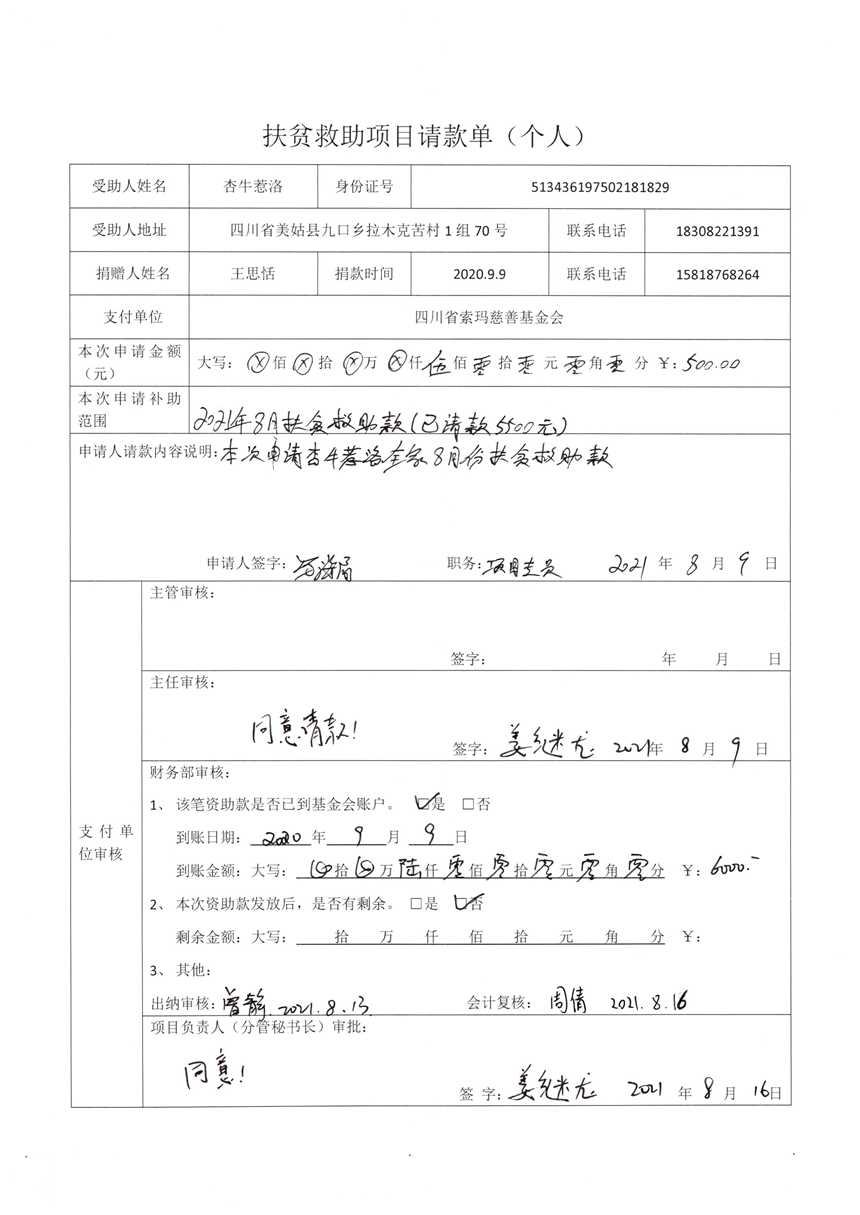 扶贫救助项目请款单（个人）
受助人姓名 杏牛惹洛 身份证号 513436197502181829
受助人地址 四川省美姑县九口乡拉木克苦村1组70号 联系电话 18308221391
捐赠人姓名 王思恬 捐款时间 2020.9.9 联系电话 15818768264
支付单位 四川省索玛慈善基金会
本次申请金额（元） 大写：ⓧ佰ⓧ拾ⓧ万ⓧ仟伍佰零拾零元零角零分 ¥：500.00
本次申请补助范围 2021年8月扶贫救助款(已请款5500元)
申请人请款内容说明：本次申请杏牛惹洛全家8月份扶贫救助款
申请人签字： 职务：项目专员 2021年8月9日
支付单位审核
主管审核：
签字： 年 月 日
主任审核：
同意请款！
签字：姜继尤 2021年8月9日
财务部审核：
1、该笔资助款是否已到基金会账户。 ☑是 □否
到账日期：2020年9月9日
到账金额：大写：ⓧ拾ⓧ万陆仟零佰零拾零元零角零分 ¥：6000.-
2、本次资助款发放后，是否有剩余。 □是 ☑否
剩余金额：大写： 拾 万 仟 佰 拾 元 角 分 ¥：
3、其他：
出纳审核：曾静 2021.8.13 会计复核：周倩 2021.8.16
项目负责人（分管秘书长）审批：
同意！
签 字：姜继尤 2021年8月16日